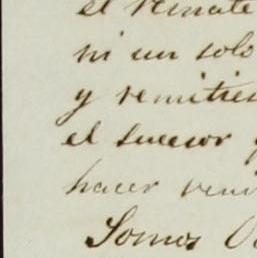 el remate
ni un solo
y remities
el sucesor
hacer
Somos